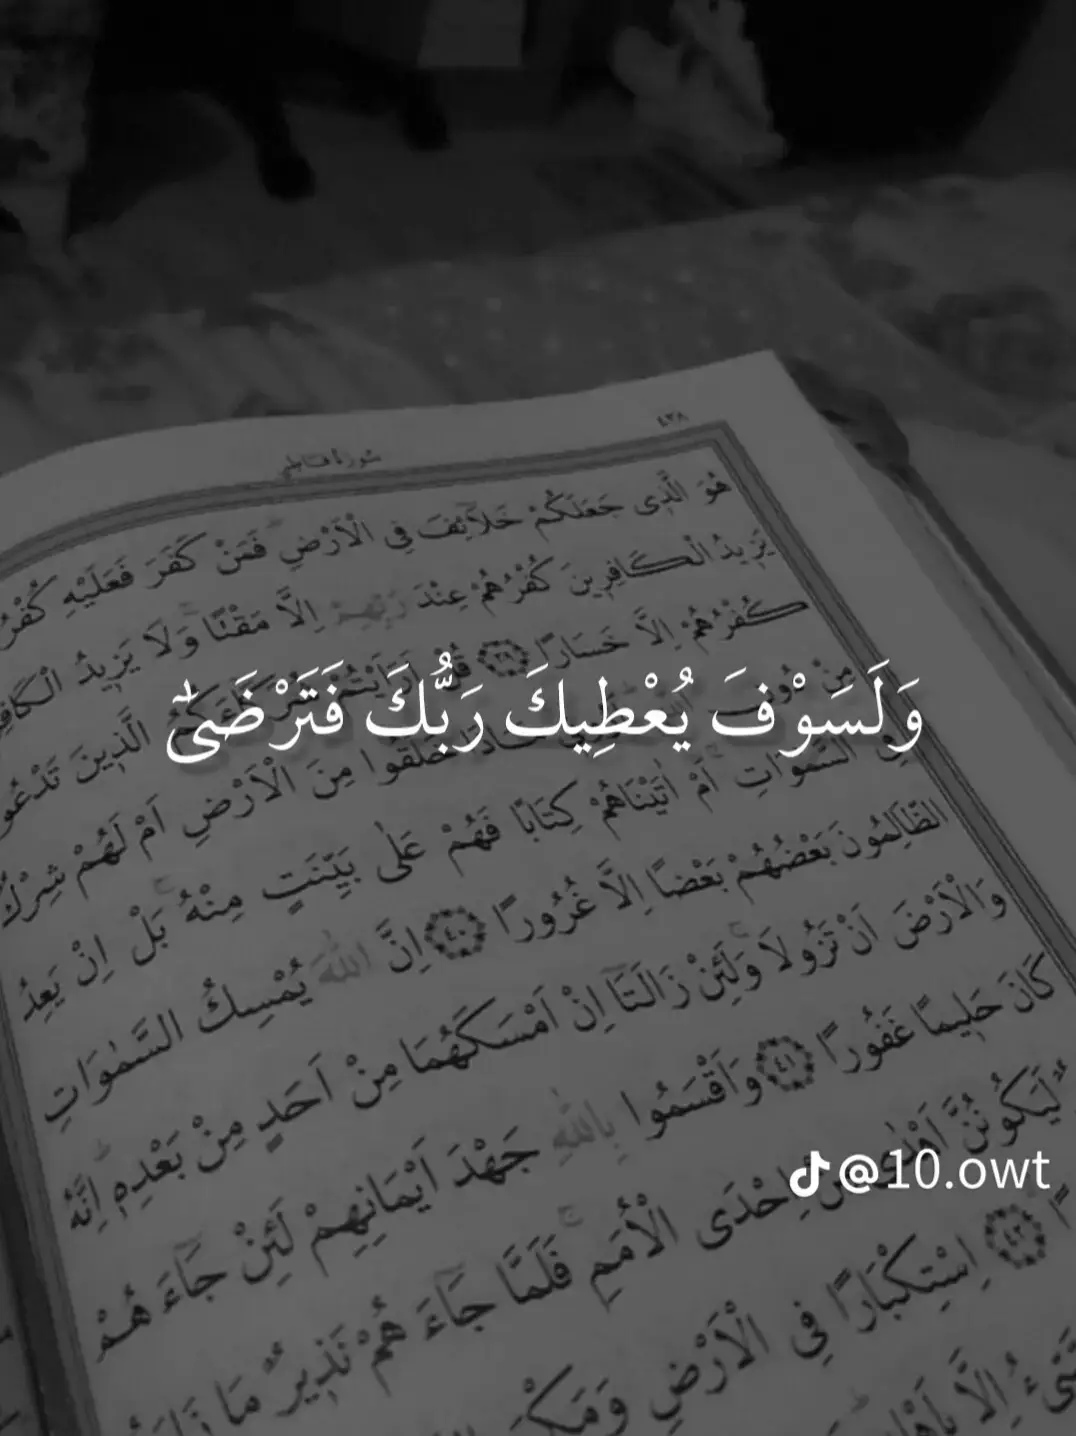 ٤٣٨
سورة فاطر
هُوَ الَّذِى جَعَلَكُمْ خَلَٓائِفَ فِى الْاَرْضِ فَمَنْ كَفَرَ فَعَلَيْهِ كُفْرُ
يَزِيدُ الْكَافِرِينَ كُفْرُهُمْ عِنْدَ رَبِّهِمْ اِلَّا مَقْتًا وَلَا يَزِيدُ الْكَافِ
كُفْرُهُمْ اِلَّا خَسَارًا ٣٩ قُلْ الَّذِينَ تَدْعُو
وَلَسَوْفَ يُعْطِيكَ رَبُّكَ فَتَرْضَىٰٓ
مِنْ دُونِ خَلَقُوا مِنَ الْاَرْضِ اَمْ لَهُمْ شِرْكٌ
السَّمٰوَاتِ اَمْ اٰتَيْنَاهُمْ كِتَابًا فَهُمْ عَلٰى بَيِّنَتٍ مِنْهُ بَلْ اِنْ يَعِدُ
الظَّالِمُونَ بَعْضُهُمْ بَعْضًا اِلَّا غُرُورًا ٤٠ اِنَّ اللّٰهَ يُمْسِكُ السَّمٰوَاتِ
وَالْاَرْضَ اَنْ تَزُولَا وَلَئِنْ زَالَتَٓا اِنْ اَمْسَكَهُمَا مِنْ اَحَدٍ مِنْ بَعْدِهٖ اِنَّهُ
كَانَ حَلِيمًا غَفُورًا ٤١ وَاَقْسَمُوا بِاللّٰهِ جَهْدَ اَيْمَانِهِمْ لَئِنْ جَٓاءَهُمْ
لَيَكُونُنَّ اَهْدٰى مِنْ اِحْدَى الْاُمَمِ فَلَمَّا جَٓاءَهُمْ نَذِيرٌ مَا
٤٢ اِسْتِكْبَارًا فِى الْاَرْضِ وَمَكْرَ
اِلَّا بِاَهْلِهٖ
@10.owt